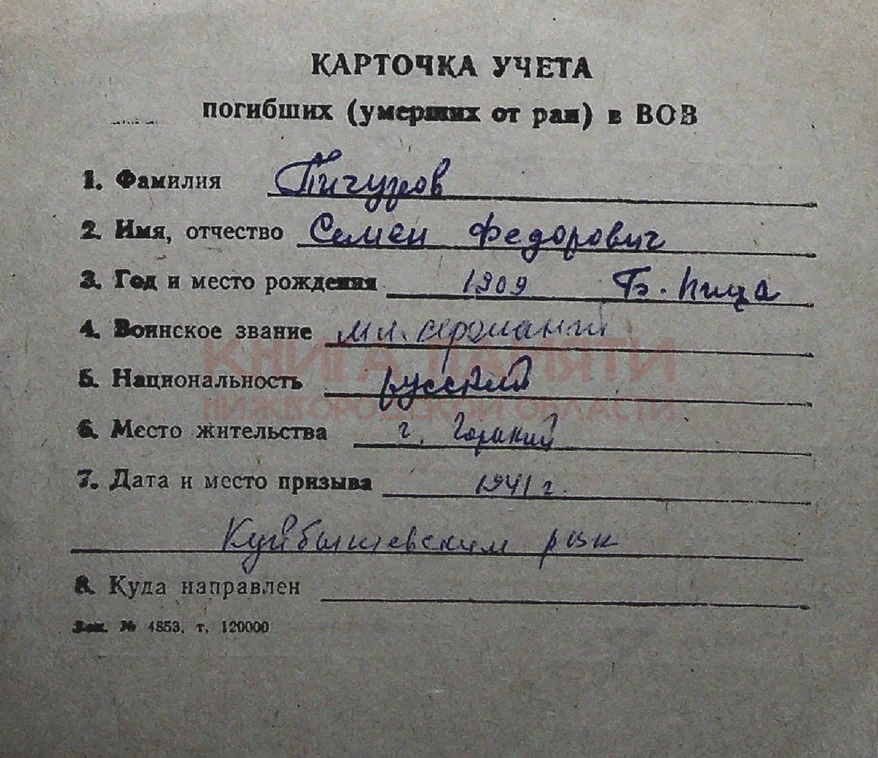 КАРТОЧКА УЧЕТА
погибших (умерших от ран) в ВОВ
1. Фамилия Пичугров
2. Имя, отчество Семен Федорович
3. Год и место рождения 1909 Б. Пица
4. Воинское звание мл. сержант
КНИГА ПАМЯТИ
5. Национальность русский
НИЖЕГОРОДСКОЙ ОБЛАСТИ
6. Место жительства г. Горький
7. Дата и место призыва 1941 г.
Куйбышевским рвк
8. Куда направлен
Зак. № 4853, т. 120000